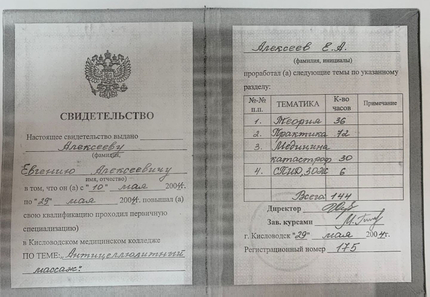 СВИДЕТЕЛЬСТВО
Настоящее свидетельство выдано
Алексееву
(фамилия,
Евгению Алексеевичу
имя, отчество)
в том, что он (а) с "10" мая 2004г.
по "28" мая 2004г. повышал (а)
свою квалификацию (проходил первичную
специализацию)
в Кисловодском медицинском колледже
ПО ТЕМЕ: „Антицеллюлитный
массаж"
Алексеев Е.А.
(фамилия, инициалы)
проработал (а) следующие темы по указанному
разделу:
№-№ п.п. ТЕМАТИКА К-во часов Примечание
1. Теория 36
2. Практика 72
3. Медицина
катастроф 30
4. 6
Всего: 144
Директор
Зав. курсами
г. Кисловодск "29" мая 2004г.
Регистрационный номер 175